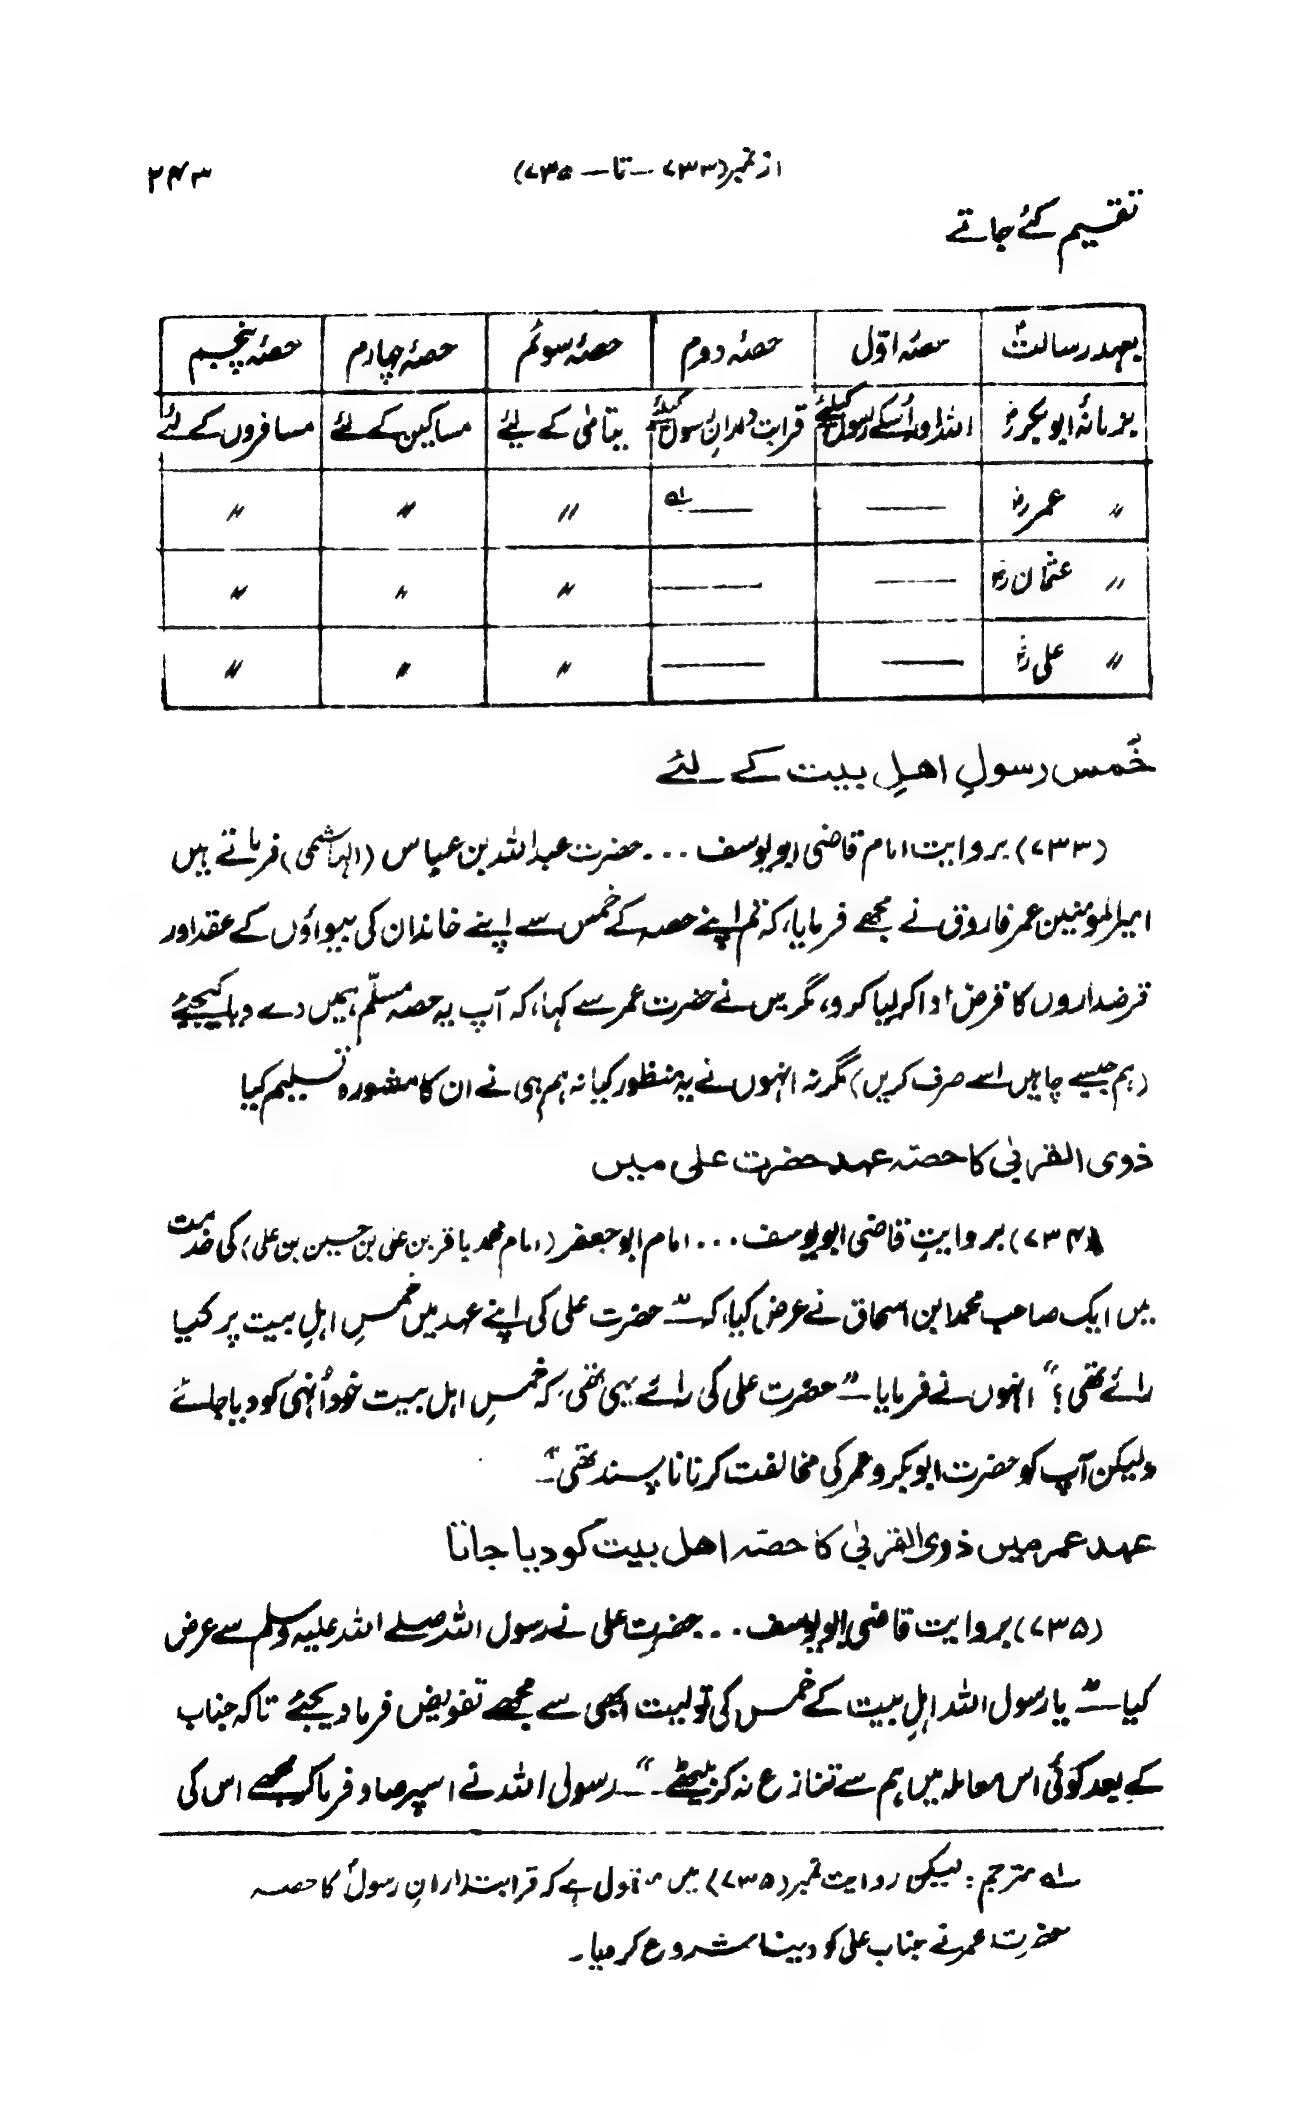 از نمبر (۷۳۳ — تا — ۷۳۵) ۲۴۳
تقسیم کئے جاتے
بعہد رسالتؐ حصہ اوّل حصہ دوم حصہ سوئم حصہ چہارم حصہ پنجم
بزمانہ ابوبکرؓ اللہ اور اُسکے رسول کیلئے قرابت داران رسول کیلئے یتامٰی کے لئے مساکین کے لئے مسافروں کے لئے
〃 عمرؓ —— ——لہ 〃 〃 〃
〃 عثمانؓ —— —— 〃 〃 〃
〃 علیؓ —— —— 〃 〃 〃
خُمس رسولِ اھلِ بیت کے لئے
(۷۳۳) بروایت امام قاضی ابویوسف ... حضرت عبداللہ بن عباس (الہاشمی) فرماتے ہیں
امیرالمومنین عمر فاروق نے مجھے فرمایا، کہ تم اپنے حصہ کے خمس سے اپنے خاندان کی بیواؤں کے عقد اور
قرضداروں کا قرض ادا کر لیا کرو، مگر میں نے حضرت عمر سے کہا، کہ آپ یہ حصہ مسلّم ہمیں دے دیا کیجیئے
(ہم جیسے چاہیں اسے صرف کریں) مگر نہ انہوں نے یہ منظور کیا نہ ہم ہی نے ان کا مشورہ تسلیم کیا
ذوی القربیٰ کا حصّہ عہد حضرت علی میں
(۷۳۴) بروایتِ قاضی ابویوسف ... امام ابوجعفر (امام محمد باقر بن علی بن حسین بن علی) کی خدمت
میں ایک صاحب محمد ابن اسحاق نے عرض کیا، کہ — ”حضرت علی کی اپنے عہد میں خُمسِ اہلِ بیت پر کیا
رائے تھی؟“ انہوں نے فرمایا — ”حضرت علی کی رائے یہی تھی کہ خُمسِ اہل بیت خود اُنہی کو دیا جائے
ولیکن آپ کو حضرت ابوبکر و عمر کی مخالفت کرنا ناپسند تھی“—
عہد عمر میں ذوی القربیٰ کا حصّہ اھل بیت کو دیا جانا
(۷۳۵) بروایت قاضی ابویوسف ... حضرت علی نے رسول اللہ صلے اللہ علیہ وسلم سے عرض
کیا — ”یا رسول اللہ اہلِ بیت کے خمس کی تولیت ابھی سے مجھے تفویض فرما دیجئے تاکہ جناب
کے بعد کوئی اس معاملہ میں ہم سے تنازع نہ کر بیٹھے۔“ — رسول اللہ نے اسپر صاد فرما کر مجھے اس کی
لہ مترجم : لیکن روایت نمبر (۷۳۵) میں منقول ہے کہ قرابتدارانِ رسولؐ کا حصہ
حضرت عمر نے جناب علی کو دینا شروع کر دیا۔